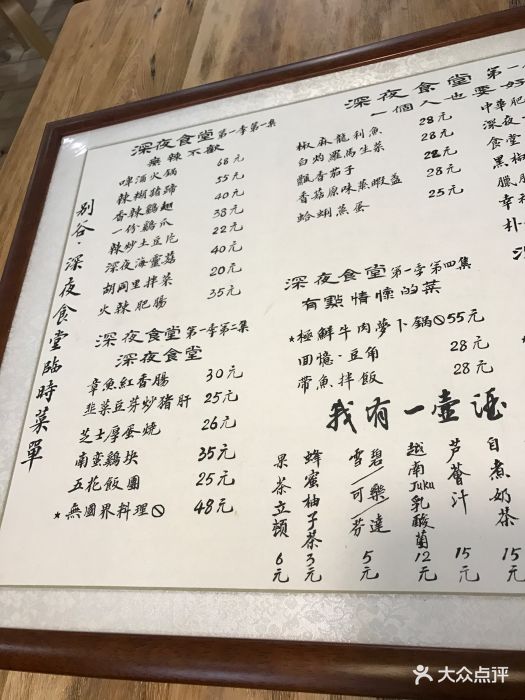 别谷·深夜食堂臨時菜單
深夜食堂第一季第一集
麻辣不歡
啤酒火鍋 68元
辣糊豬蹄 55元
香辣鷄翅 40元
一份鷄爪 38元
辣炒土豆片 22元
深夜海靈菇 40元
胡同里拌菜 20元
火辣肥腸 35元
深夜食堂第一季第二集
深夜食堂
章魚紅香腸 30元
韭菜豆芽炒猪肝 25元
芝士厚蛋燒 26元
南蛮鷄块 35元
五花飯團 25元
*無國界料理 48元
深夜食堂第一
一個人也要好
椒麻龍利魚 28元
白灼羅馬生菜 28元
飄香茄子 28元
香菇原味蒸蝦盏 28元
蛤蜊蒸蛋 25元
中華肥
深夜
食堂
黑椒
臘
幸
朴
深夜食堂第一季第四集
有點情懷的菜
*極鮮牛肉萝卜锅 55元
回憶·豆角 28元
带魚拌飯 28元
我有一壺酒
果茶立頓 6元
蜂蜜柚子茶 3元
雪碧/可樂/芬達 5元
越南Juku乳酸菌 12元
芦薈汁 15元
自煮奶茶 15元
大众点评